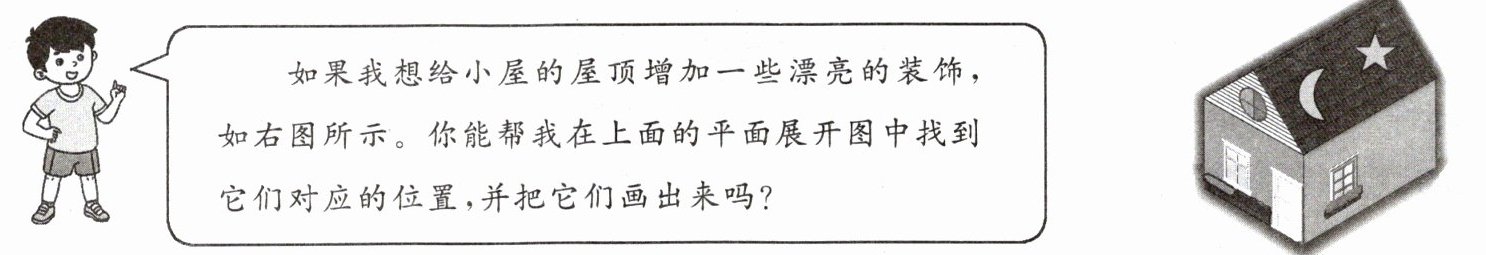 如果我想给小屋的屋顶增加一些漂亮的装饰，
如右图所示。你能帮我在上面的平面展开图中找到
它们对应的位置，并把它们画出来吗？